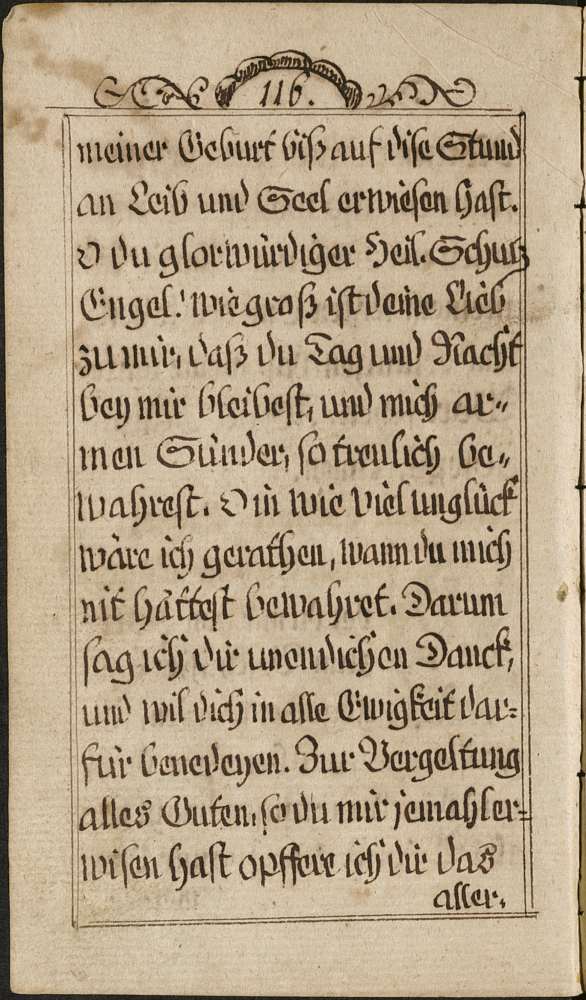 116.
meiner Geburt biß auf dise Stund
an Leib und Seel erwiesen hast.
O du glorwürdiger Heil. Schutz
Engel! wie groß ist deine Lieb
zu mir, daß du Tag und Nacht
bey mir bleibest, und mich ar„
men Sünder, so treulich be„
wahrest. O in wie viel unglück
wäre ich gerathen, wann du mich
nit hättest bewahret. Darum
sag ich dir unendlichen Danck,
und wil dich in alle Ewigkeit dar=
für benedeyen. Zur Vergeltung
alles Guten, so du mir jemahl er=
wisen hast opffere ich dir das
aller,